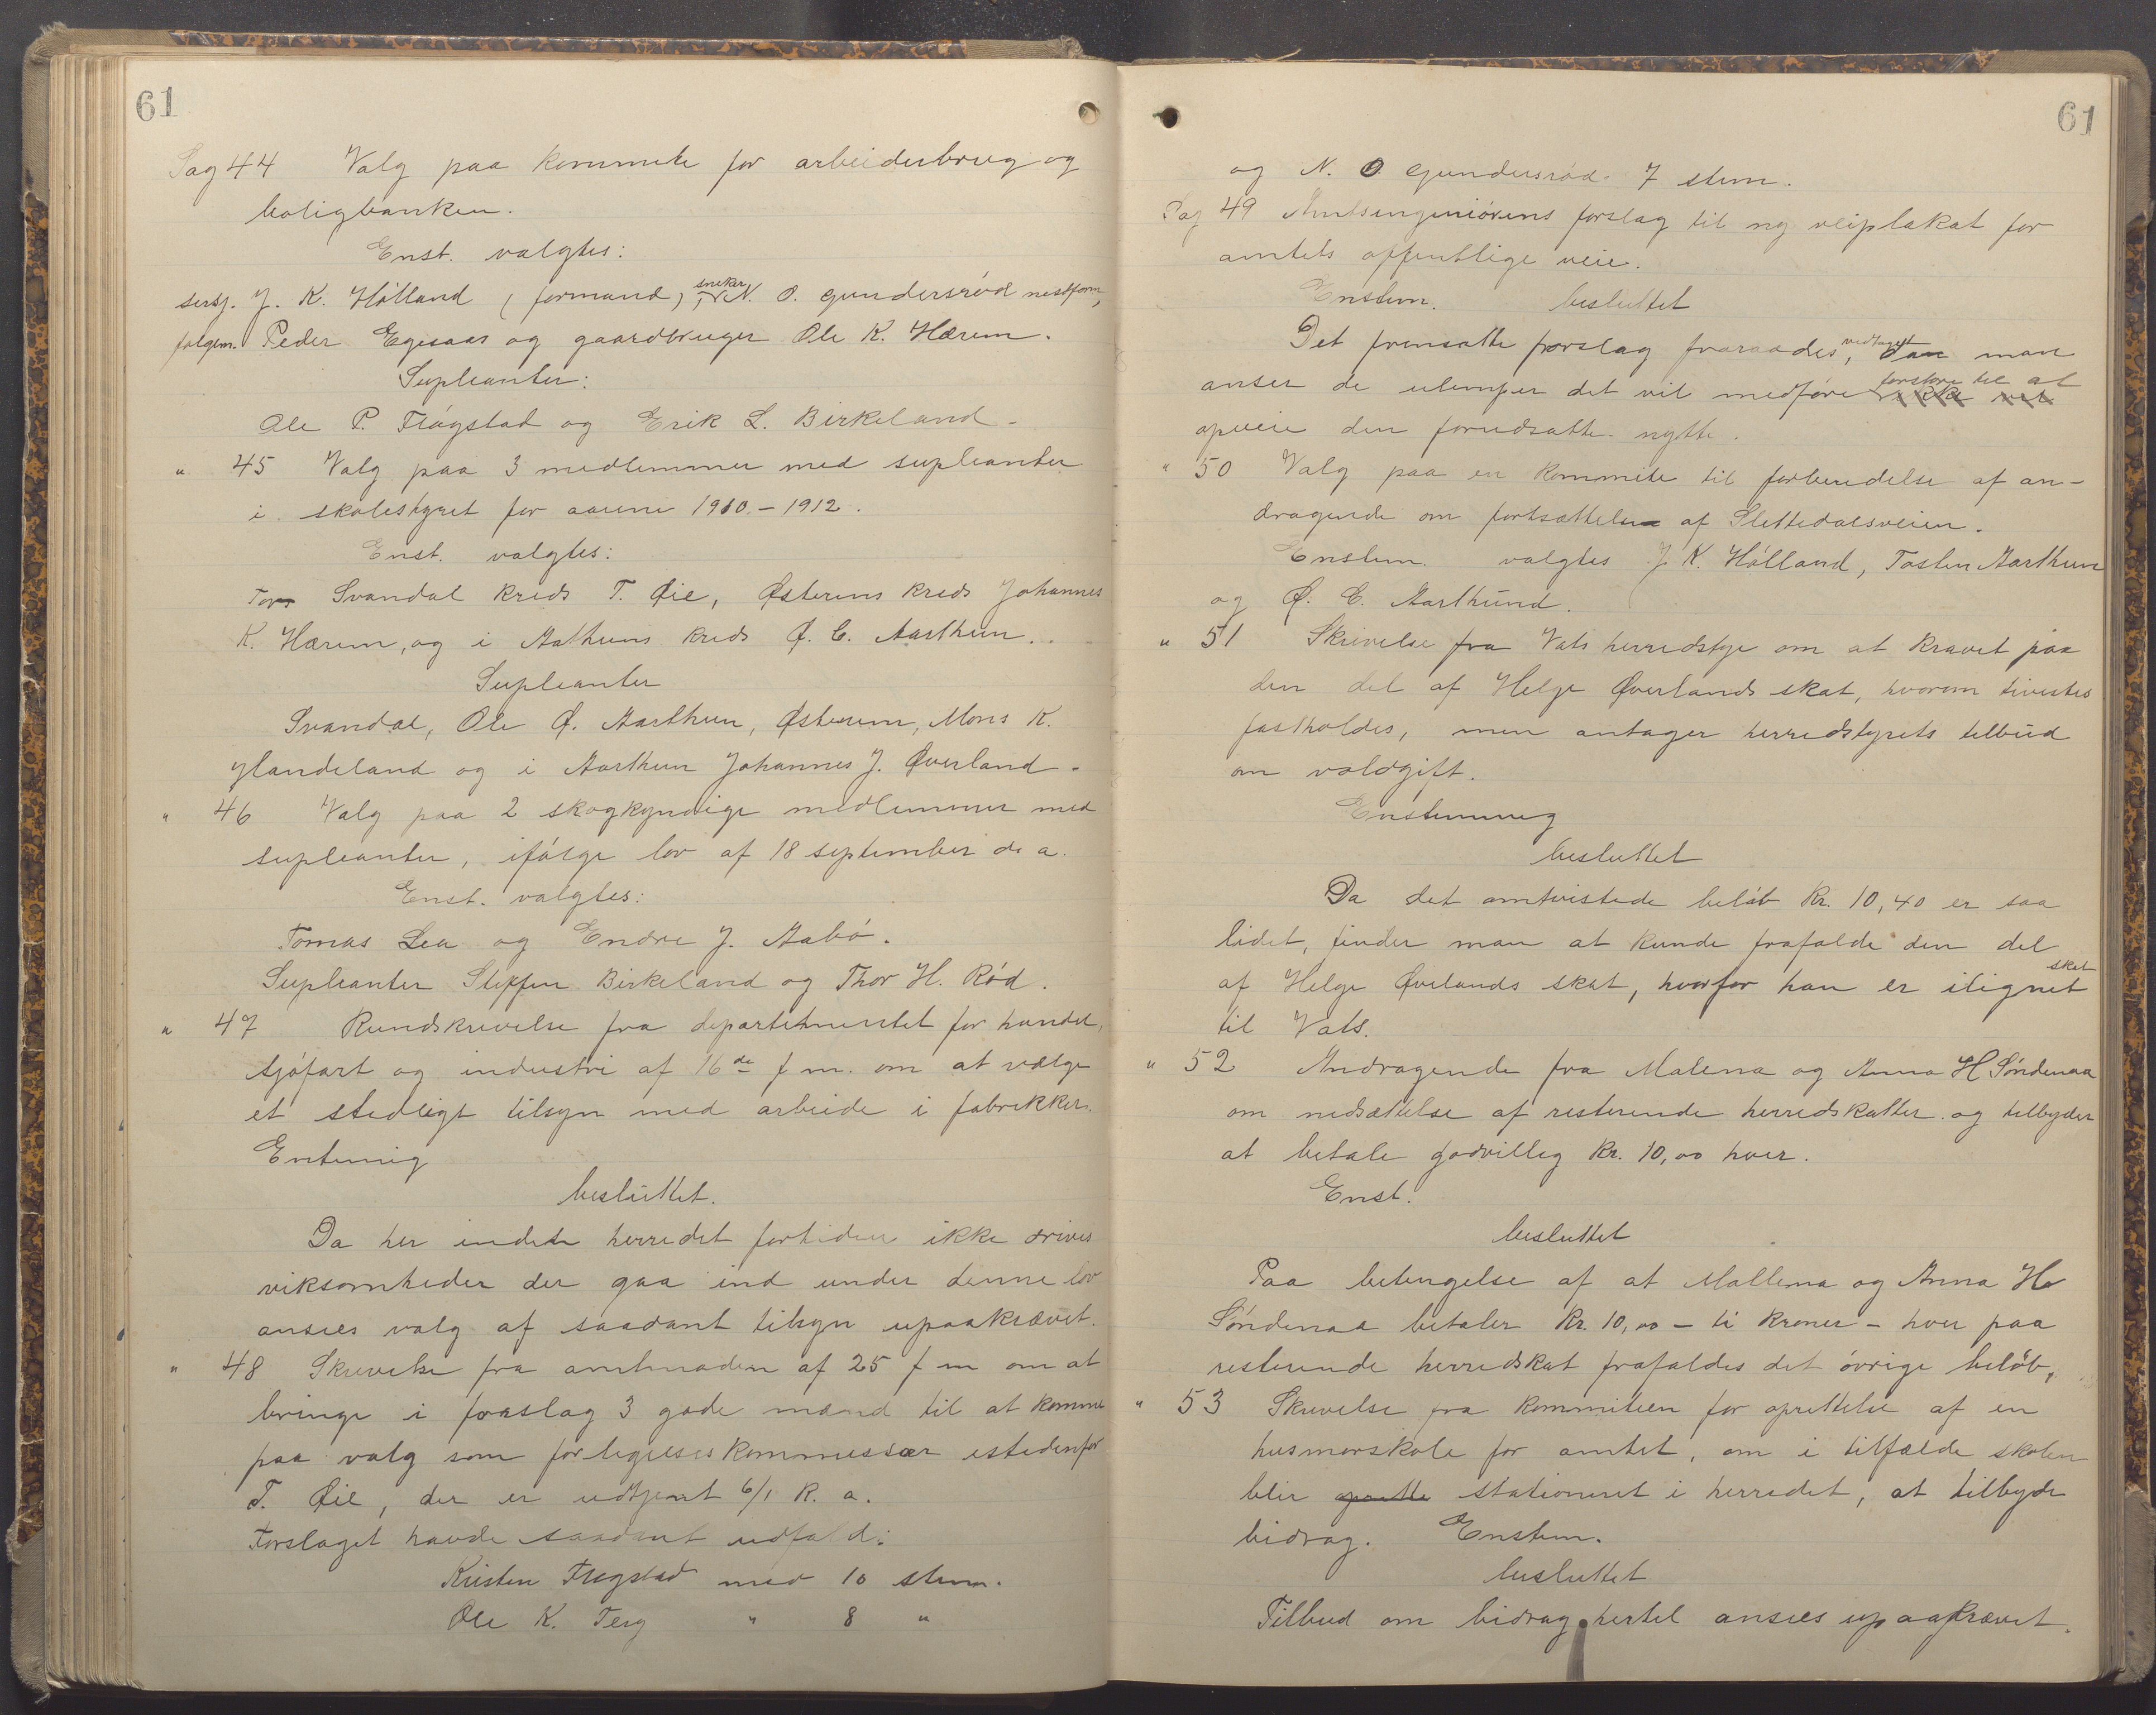 61
Sag 44 Valg paa kommite for arbeiderbrug og
boligbanken.
Enst. valgtes:
sersj. J. K. Hólland (formand, snekr. N. O. Gundersród nestform,
Peder Egesaas og gaardbruger Ole K. Hærem.
Supleanter:
Ole P. Flógstad og Erik L. Birkeland.
" 45 Valg paa 3 medlemmer med supleanter
i skolestyret for aarene 1910–1912.
Enst. valgtes:
For Svandal kreds T. Øie, Østerems kreds Johannes
K. Hærem, og i Aathuns kreds Ø. E. Aarthun.
Supleanter
Svandal, Ole Ø. Aarthun, Østerem, Mons K.
Handeland og i Aarthun Johannes J. Øverland.
" 46 Valg paa 2 skogkyndige medlemmer med
supleanter, ifólge lov af 18 september d. a.
Enst. valgtes:
Tomas Lea og Endre J. Aabó.
Supleanter Steffen Birkeland og Thor H. Ród.
" 47 Rundskrivelse fra departementet for handel,
sjófart og industri af 16de f m. om at vælge
et stedligt tilsyn med arbeide i fabrikker.
Entemig
besluttet.
Da her inden herredet fortiden ikke drives
viksomheder der gaa ind under denne lov
ansees valg af saadant tilsyn upaakrævet.
" 48 Skrivelse fra amtmaden af 25 f m om at
bringe i forslag 3 gode mænd til at komme
paa valg som forligelseskommissær istedenfor
T. Øie, der er udtjent 6/1 k. a.
Forslaget havde saadant udfald:
Kristen Flogstad med 10 stem.
Ole K. Teig " 8 "
61
og N. O Gundersród 7 stem.
Sag 49 Amtsingeniórens forslag til ny veiplakat for
amtets offentlige veie.
Enstem. besluttet
Det fremsatte forslag fraraades, vedtaget da man
anser de ulemper det vil medføre forstore til at ikke vil
opveie den forudsatte nytte.
" 50 Valg paa en kommite til forberedelse af an-
dragende om fortsættelse af Slettedalsveien.
Enstem. valgtes J. K. Hólland, Tosten Aarthun
og Ø. E. Aarthund.
" 51 Skrivelse fra Vats herredstye om at kravet paa
den del af Helge Øverlands skat, hvorom tvistes
fastholdes, men antager herredstyrets tilbud
om voldgift.
Enstemmig
besluttet
Da det omtvistede belób kr. 10,40 er saa
lidet, finder man at kunde frafalde den del
af Helge Øverlands skat, hvorfor han er ilignet skat
til Vats.
" 52 Andragende fra Malena og Anna H Søndenaa
om nedsættelse af resterende herredskatter og tilbyder
at betale godvillig kr. 10,00 hver.
Enst.
besluttet
Paa betingelse af at Mallena og Anna H
Søndenaa betaler kr. 10,00 – ti kroner – hver paa
resterende herredskat frafaldes det óvrige belób,
" 53 Skrivelse fra kommiteen for oprettelse af en
husmorskole for amtet, om i tilfælde skolen
blir oprette stationeret i herredet, at tilbyde
bidrag. Enstem.
besluttet
Tilbud om bidrag hertil ansees upaakrævet.